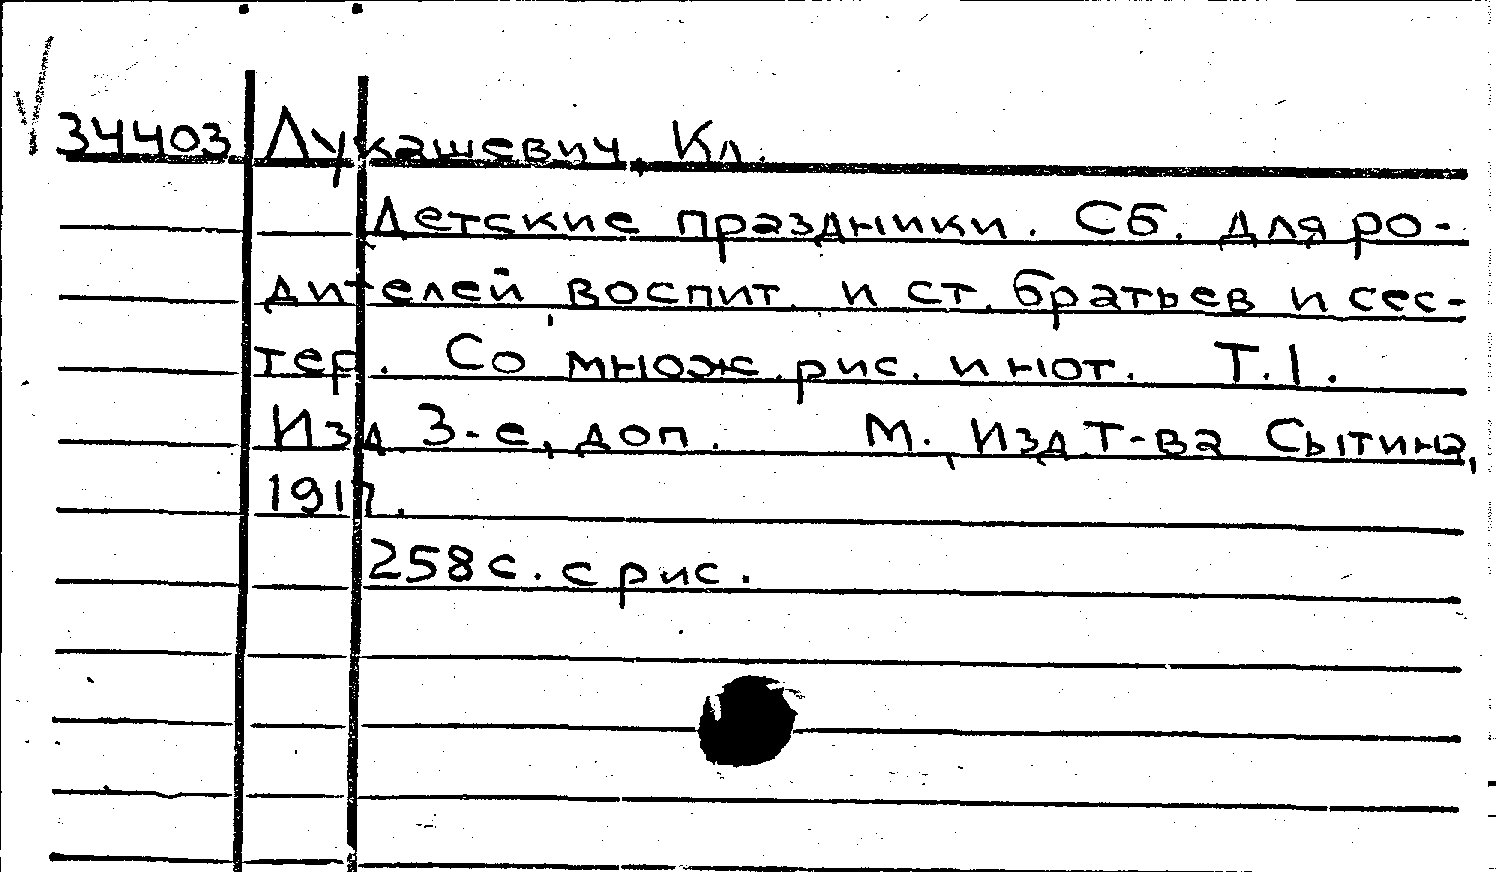 34403 Лукашевич, Кл.
Детские праздники. Сб. для ро-
дителей, воспит. и ст. братьев и сес-
тер. Со множ. рис. и нот. Т.1.
Изд. 3-е, доп. М., Изд. Т-ва Сытина,
1917.
258 с. с рис.